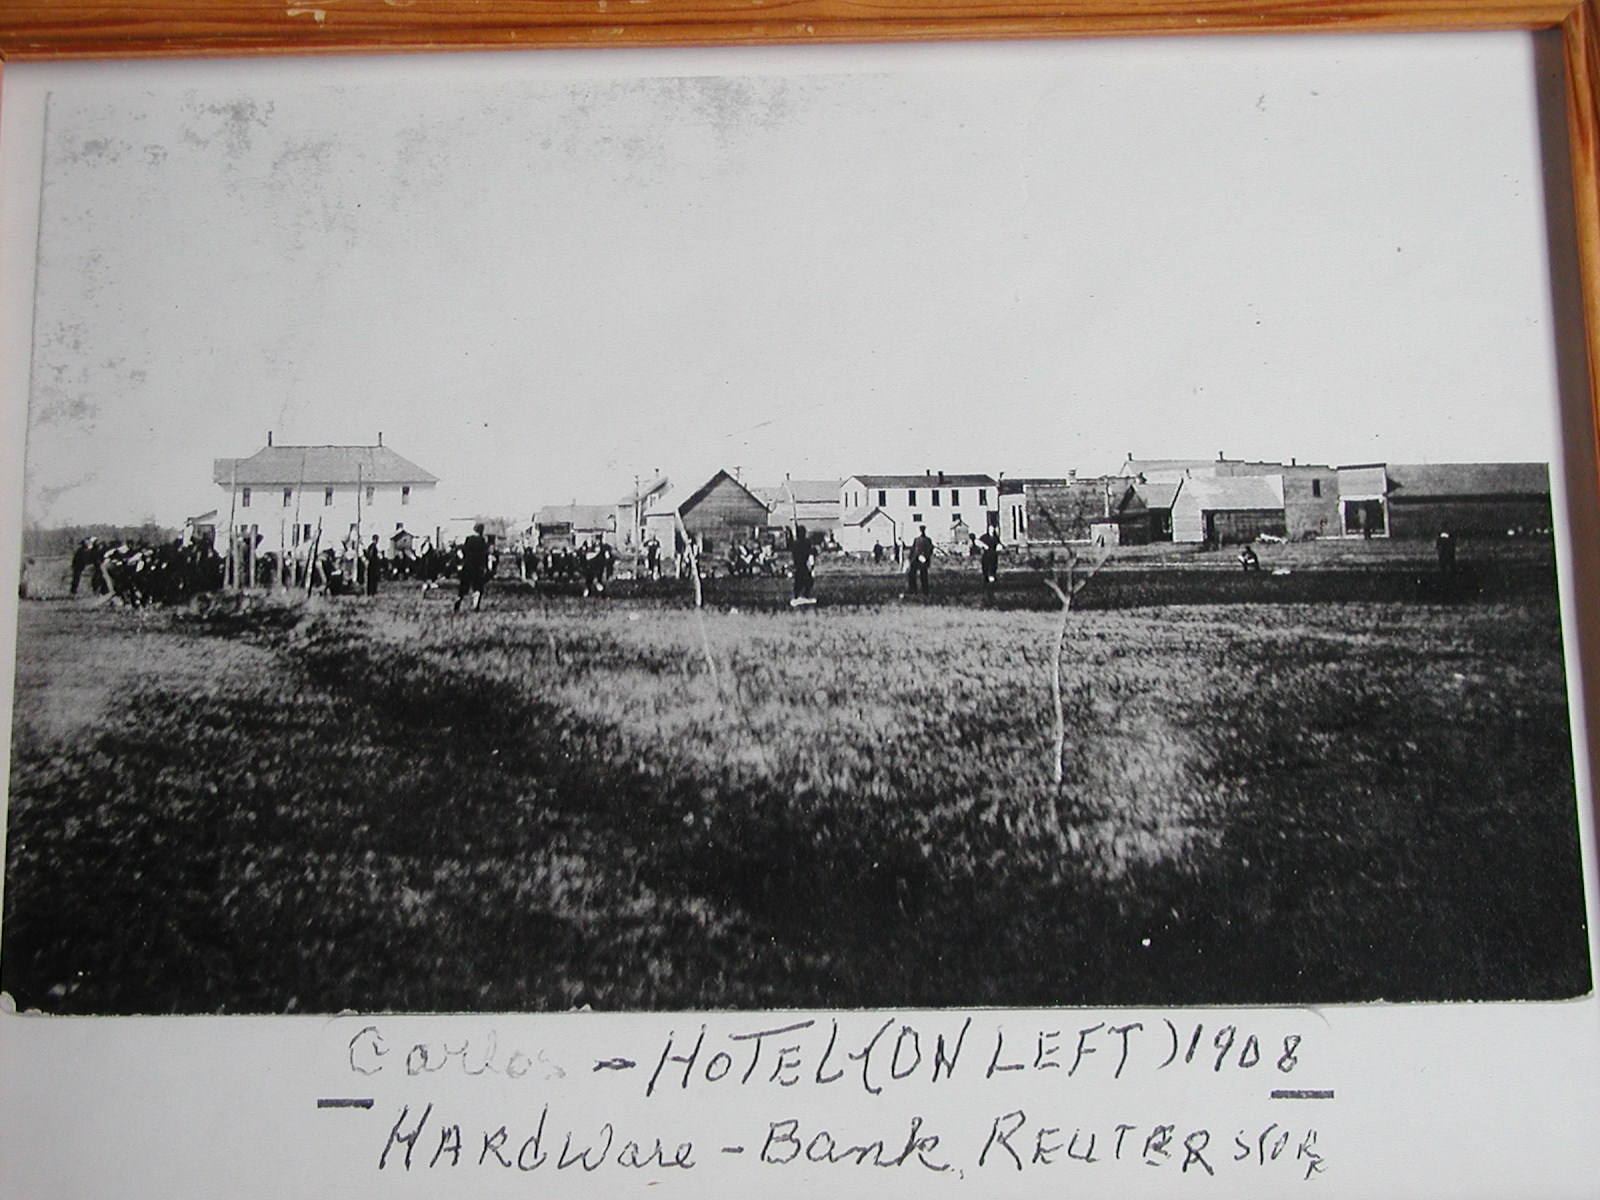 Carlos - HOTEL (ON LEFT) 1908
HARdWare - Bank, REUTER STORE